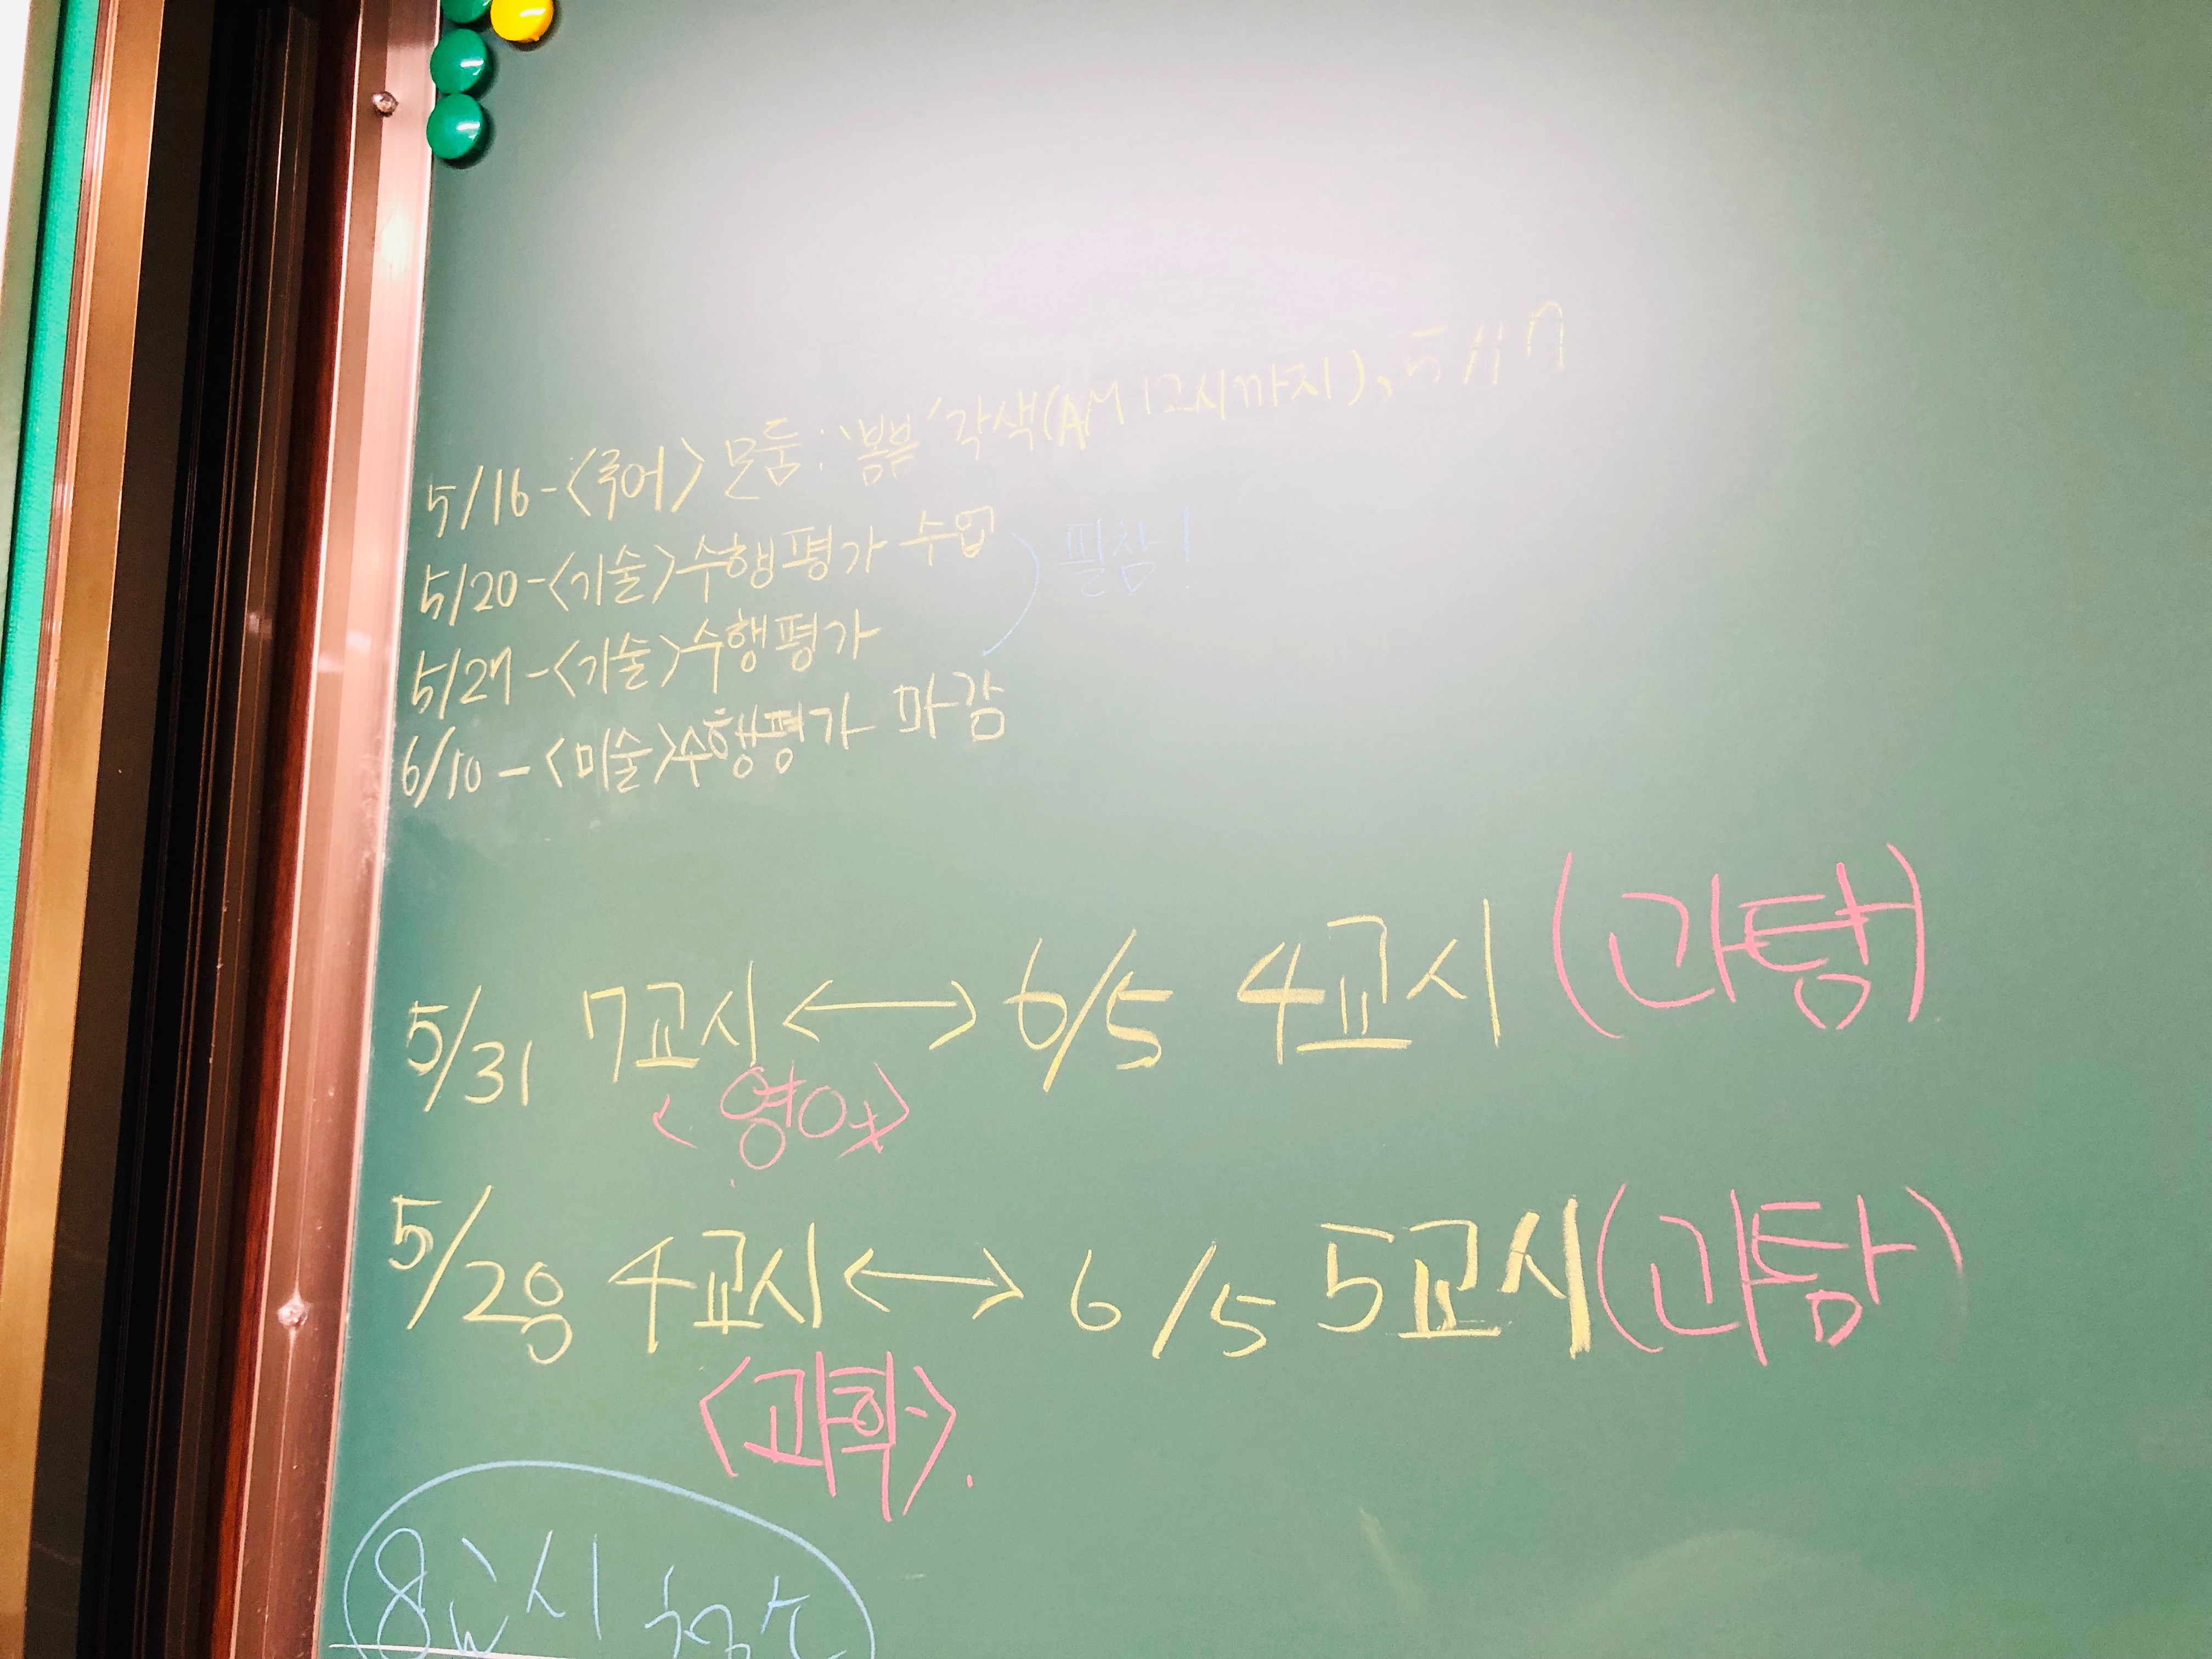 5/16-<국어> 모둠: '봄봄' 각색(AM 12시까지), 5/17
5/20-<기술>수행평가 수업
필참!
5/27-<기술>수행평가
6/10-<미술>수행평가 마감
5/31 7교시 ↔ 6/5 4교시 (과탐)
<영어>
5/28 4교시 ↔ 6/5 5교시 (과탐)
<과학>.